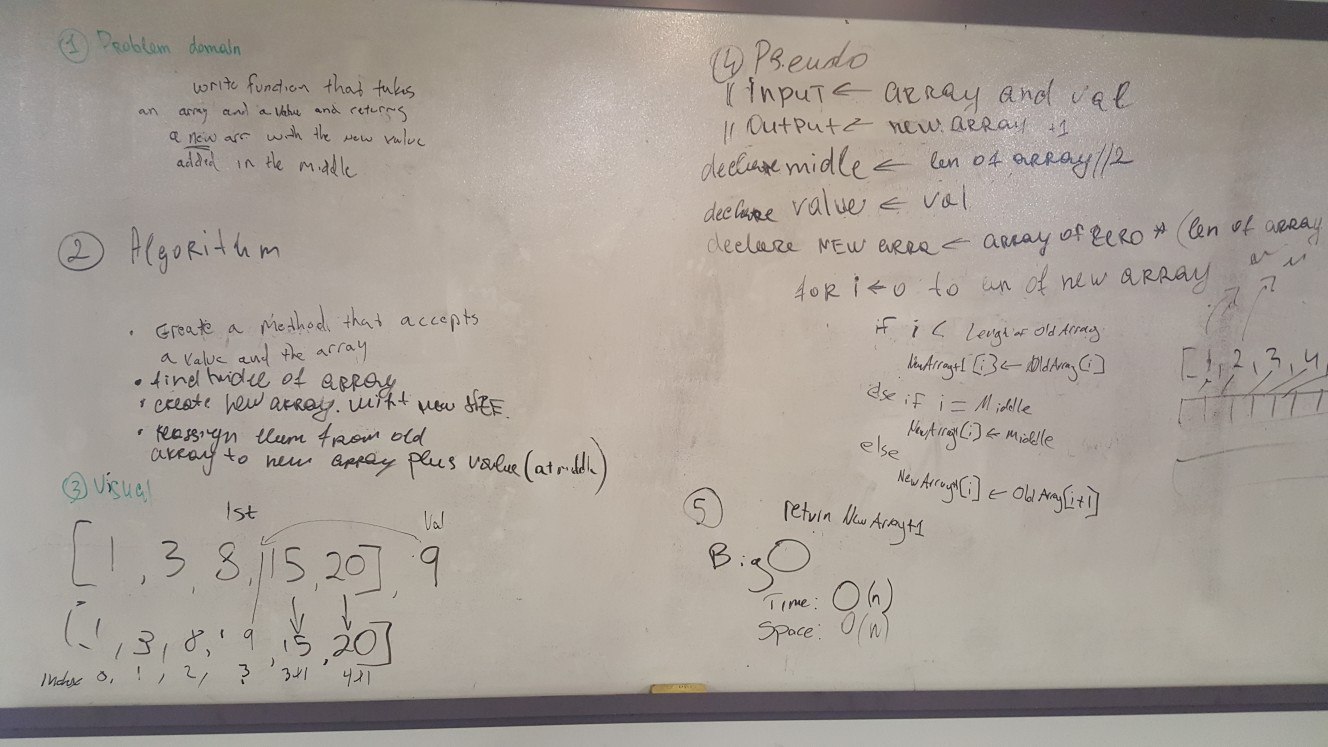 ① Problem domain
write function that takes
an array and a value and returns
a new arr with the new value
added in the middle
② Algorithm
• Create a method that accepts
a value and the array
• find midle of array
• create new array. with new SIZE.
• reassign elem from old
array to new array plus value (at middle)
③ Visual
1st
Val
[1, 3, 8, 15, 20], 9
[1, 3, 8, 9, 15, 20]
Index 0, 1, 2, 3 3+1 4+1
④ Pseudo
// INPUT ← array and val
// OutPut ← new array +1
declare midle ← len of array//2
declare value ← val
declare NEW arra ← array of ZERO * (len of array
for i ← 0 to len of new array
if i < Length of Old Array
New Array+1 [i] ← Old Array[i]
else if i = Middle
New Array[i] ← Middle
else
New Array+1[i] ← Old Array[i+1]
return New Array+1
[1, 2, 3, 4,
⑤
Big O
Time: O(n)
Space: O(n)